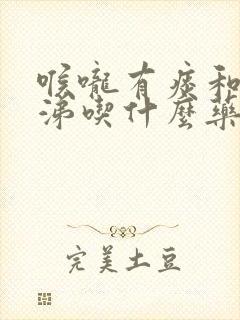 喉嚨有痰和
涕喫什麽藥
完美土豆